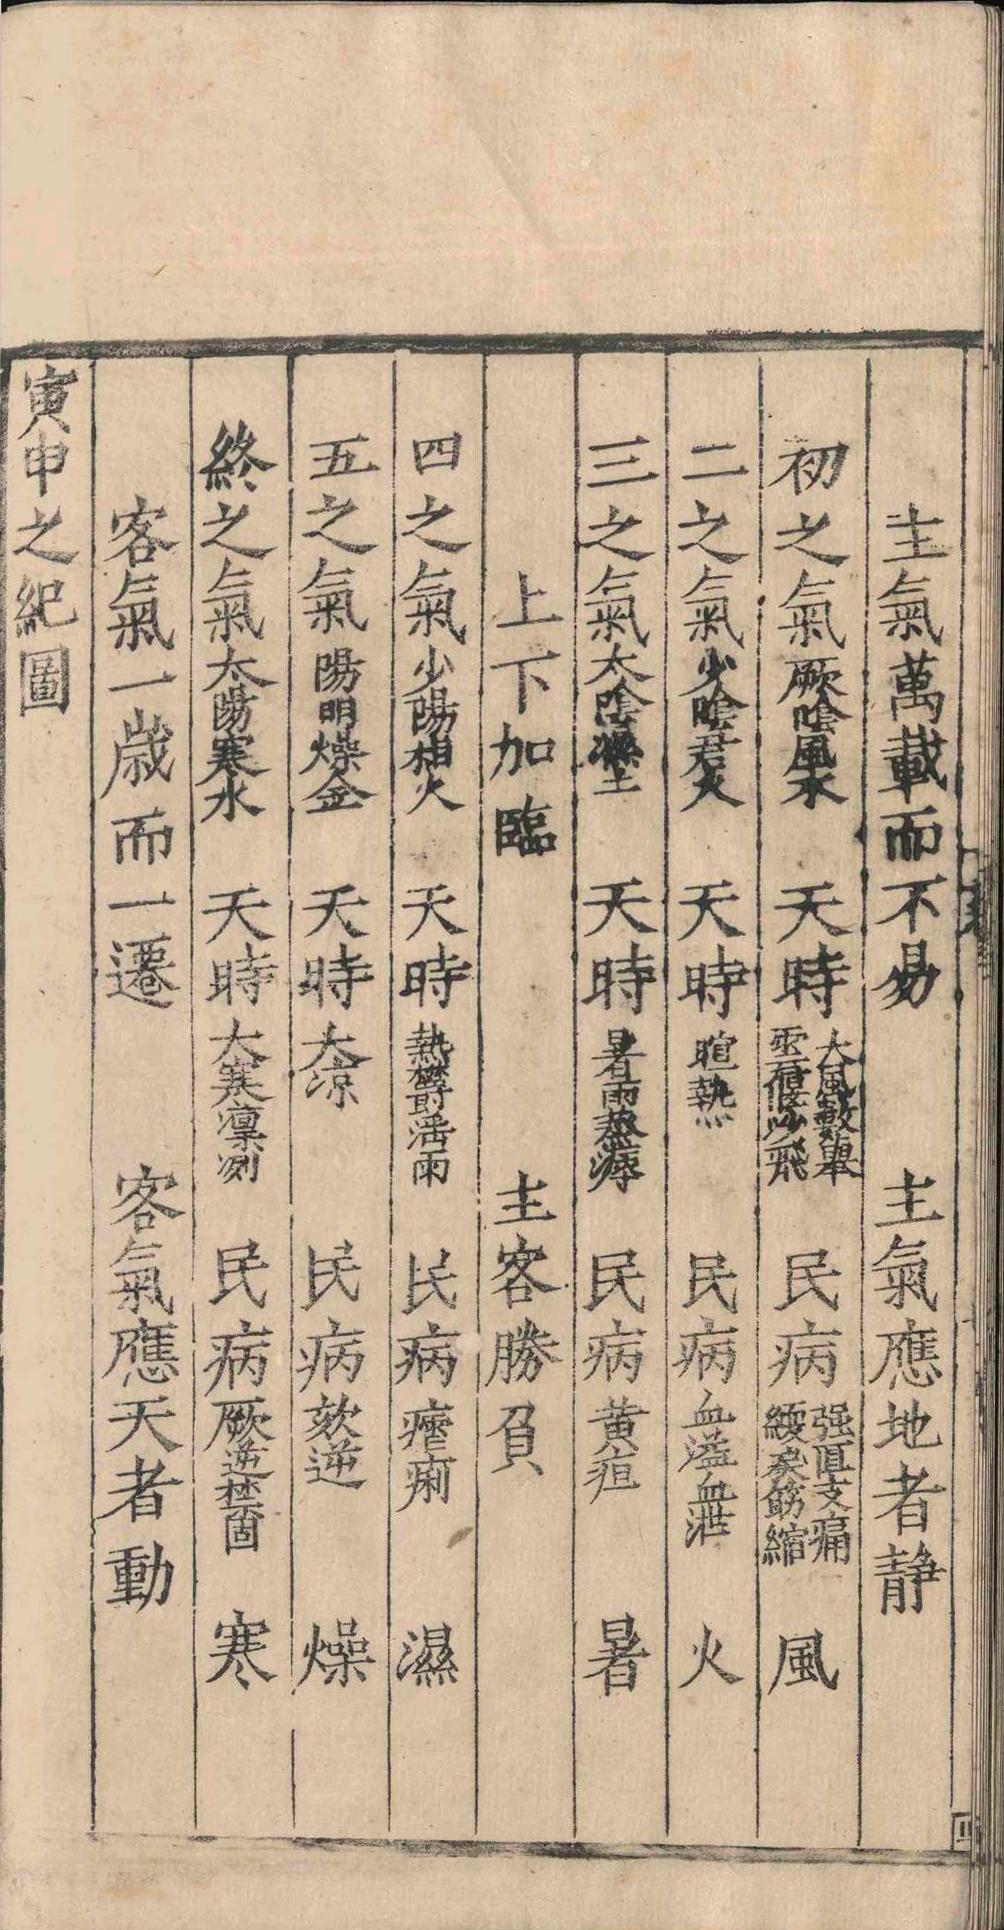 主氣萬載而不易　主氣應地者静
初之氣厥陰風木　天時大風數舉雲霾沙飛　民病强直支痛緛戾筋縮　風
二之氣少陰君火　天時暄熱　民病血溢血泄　火
三之氣太陰濕土　天時暑雨蒸溽　民病黄疸　暑
上下加臨　主客勝負
四之氣少陽相火　天時熱欝湿雨　民病瘧痢　濕
五之氣陽明燥金　天時大凉　民病欬逆　燥
終之氣太陽寒水　天時大寒凛冽　民病厥逆禁固　寒
客氣一歳而一遷　客氣應天者動
寅申之紀圖